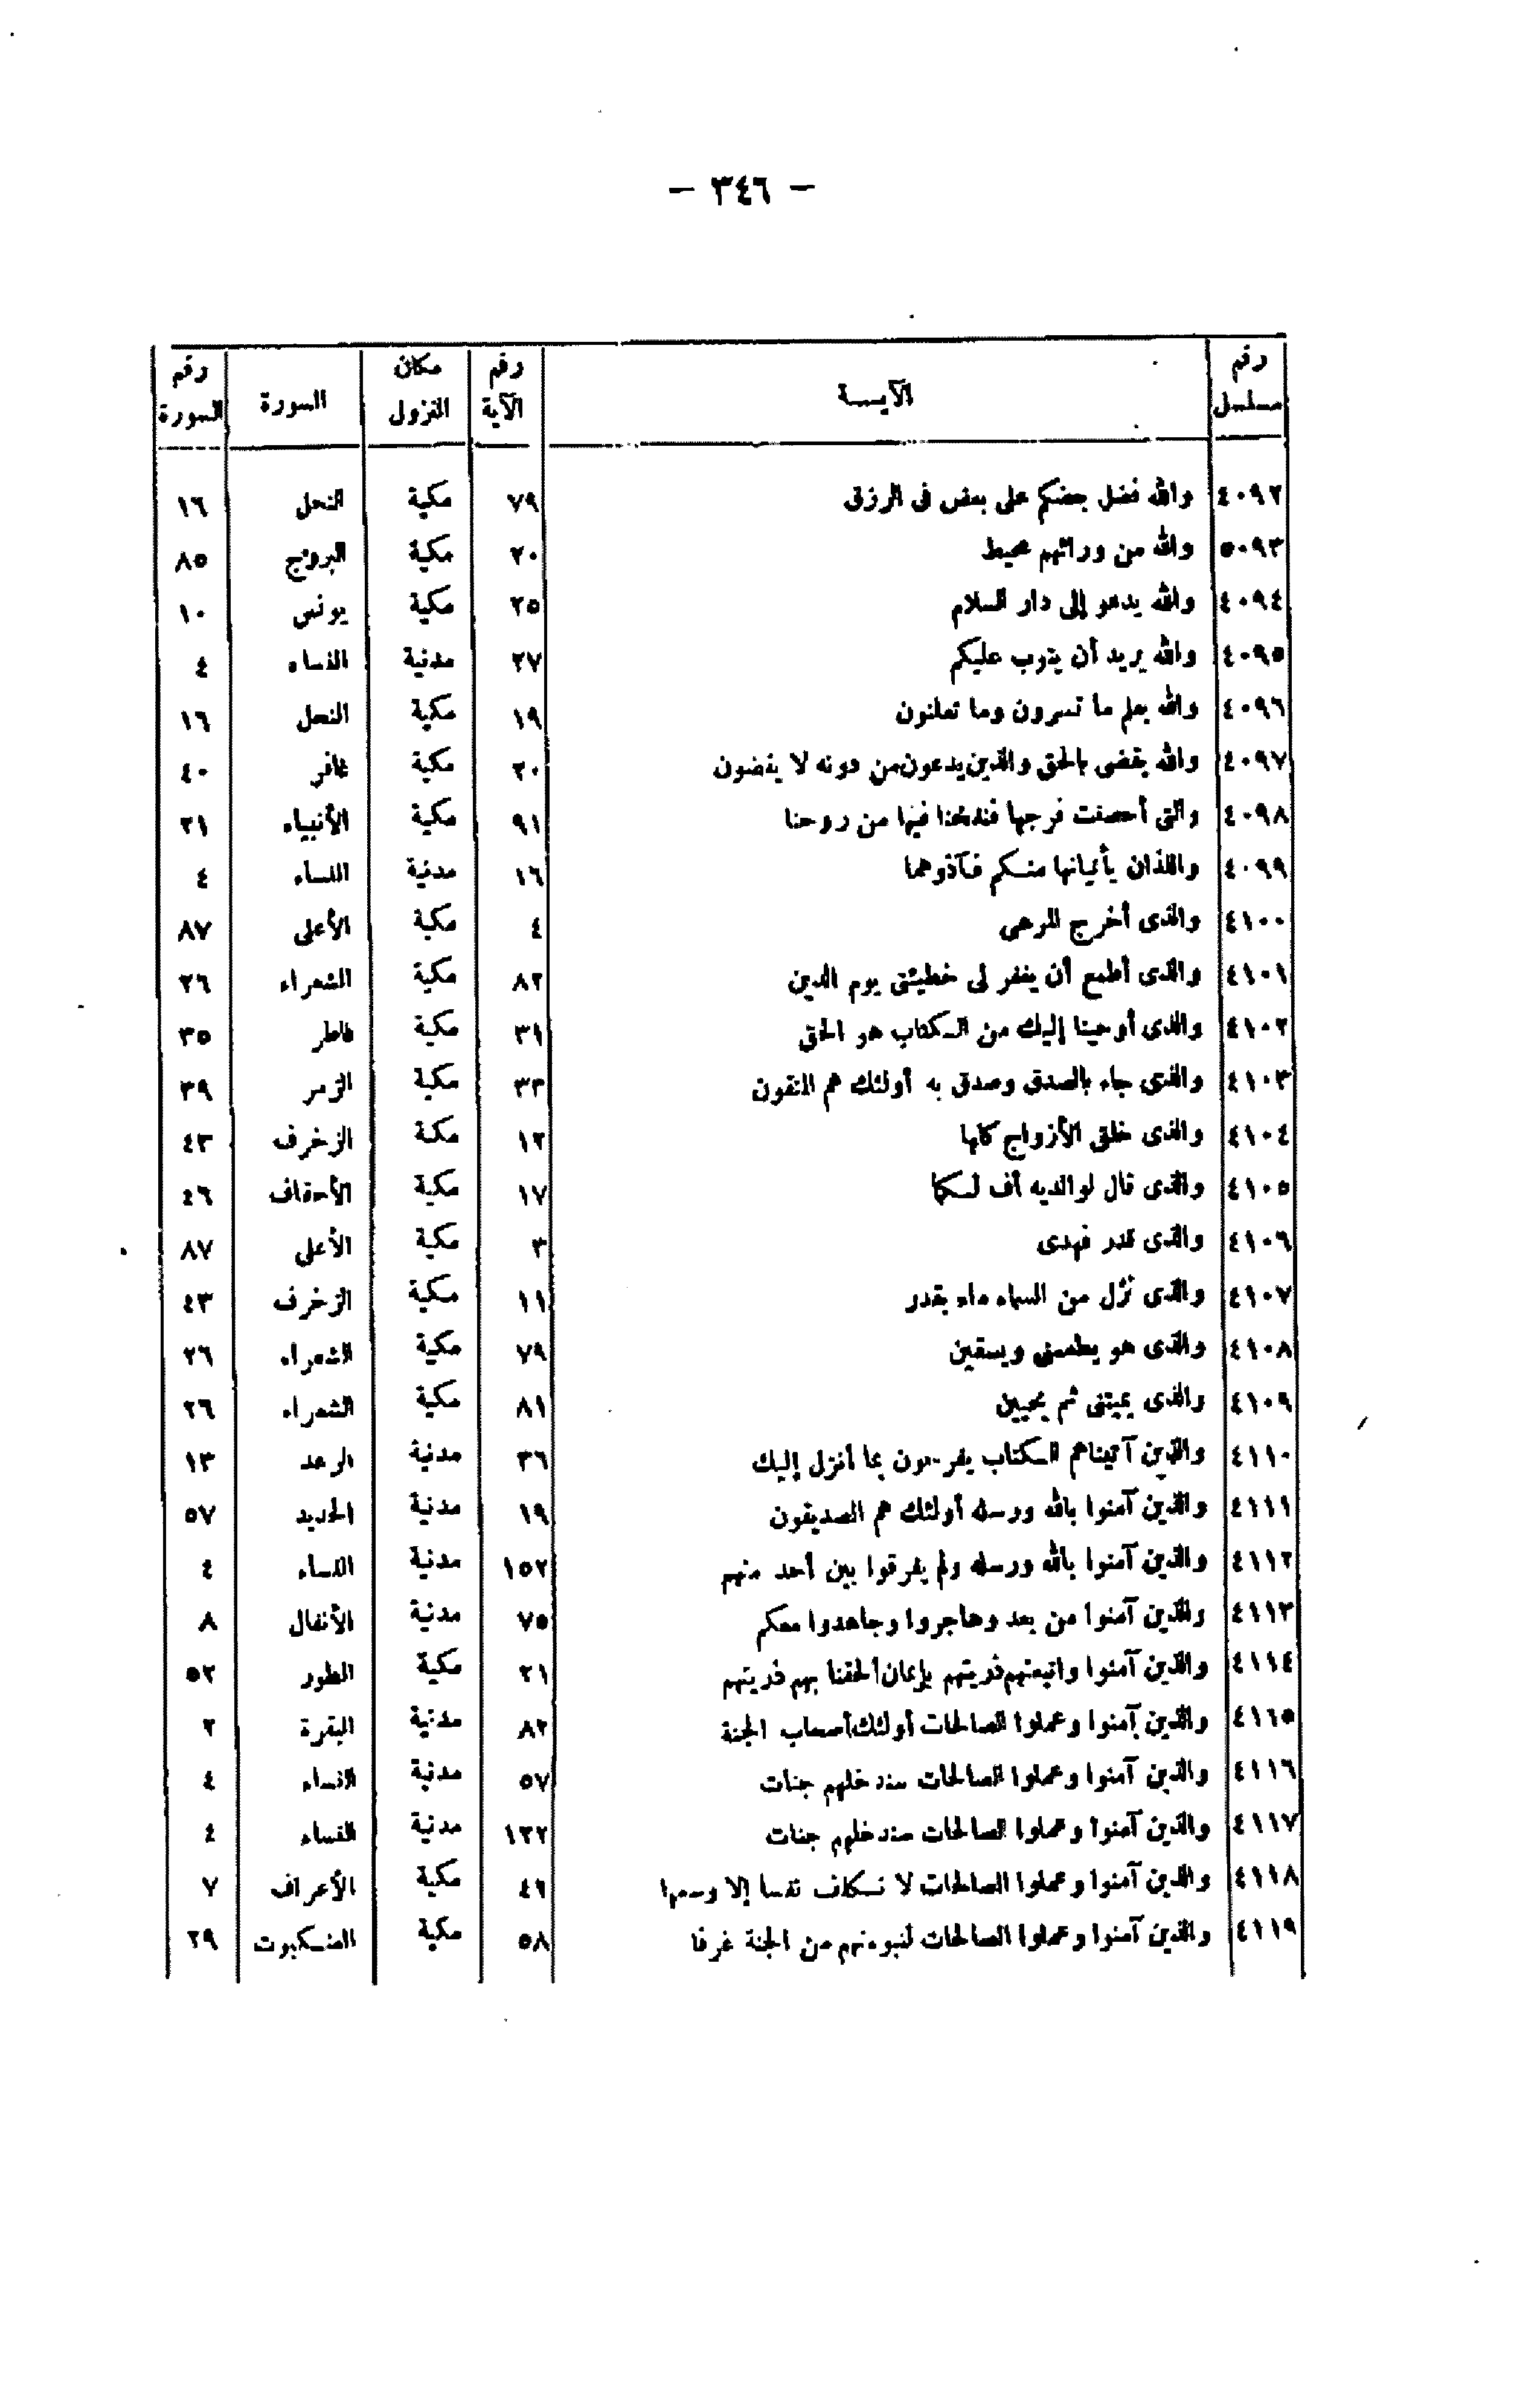 — ٣٤٦ —
رقم مسلسل الآيـــة رقم الآية مكان النزول السورة رقم السورة
٤٠٩٢ والله فضل بعضكم على بعض فى الرزق ٧٩ مكية النحل ١٦
٥٠٩٣ والله من ورائهم محيط ٢٠ مكية البروج ٨٥
٤٠٩٤ والله يدعو إلى دار السلام ٢٥ مكية يونس ١٠
٤٠٩٥ والله يريد أن يتوب عليكم ٢٧ مدنية النساء ٤
٤٠٩٦ والله يعلم ما تسرون وما تعلنون ١٩ مكية النحل ١٦
٤٠٩٧ والله يقضى بالحق والذين يدعون من دونه لا يقضون ٢٠ مكية غافر ٤٠
٤٠٩٨ والتى أحصنت فرجها فنفخنا فيها من روحنا ٩١ مكية الأنبياء ٢١
٤٠٩٩ واللذان يأتيانها منكم فآذوهما ١٦ مدنية النساء ٤
٤١٠٠ والذى أخرج المرعى ٤ مكية الأعلى ٨٧
٤١٠١ والذى أطمع أن يغفر لى خطيئتى يوم الدين ٨٢ مكية الشعراء ٢٦
٤١٠٢ والذى أوحينا إليك من الكتاب هو الحق ٣١ مكية فاطر ٣٥
٤١٠٣ والذى جاء بالصدق وصدق به أولئك هم المتقون ٣٣ مكية الزمر ٣٩
٤١٠٤ والذى خلق الأزواج كلها ١٢ مكة الزخرف ٤٣
٤١٠٥ والذى قال لوالديه أف لكما ١٧ مكية الأحقاف ٤٦
٤١٠٦ والذى قدر فهدى ٣ مكية الأعلى ٨٧
٤١٠٧ والذى نزل من السماء ماء بقدر ١١ مكية الزخرف ٤٣
٤١٠٨ والذى هو يطعمنى ويسقين ٧٩ مكية الشعراء ٢٦
٤١٠٩ والذى يميتنى ثم يحيين ٨١ مكية الشعراء ٢٦
٤١١٠ والذين آتيناهم الكتاب يفرحون بما أنزل إليك ٣٦ مدنية الرعد ١٣
٤١١١ والذين آمنوا بالله ورسله أولئك هم الصديقون ١٩ مدنية الحديد ٥٧
٤١١٢ والذين آمنوا بالله ورسله ولم يفرقوا بين أحد منهم ١٥٢ مدنية النساء ٤
٤١١٣ والذين آمنوا من بعد وهاجروا وجاهدوا معكم ٧٥ مدنية الأنفال ٨
٤١١٤ والذين آمنوا واتبعتهم ذريتهم بإيمان ألحقنا بهم ذريتهم ٢١ مكية الطور ٥٢
٤١٦٥ والذين آمنوا وعملوا الصالحات أولئك أصحاب الجنة ٨٢ مدنية البقرة ٢
٤١١٦ والذين آمنوا وعملوا الصالحات سندخلهم جنات ٥٧ مدنية النساء ٤
٤١١٧ والذين آمنوا وعملوا الصالحات سندخلهم جنات ١٢٢ مدنية النساء ٤
٤١١٨ والذين آمنوا وعملوا الصالحات لا نكلف نفسا إلا وسعها ٤٦ مكية الأعراف ٧
٤١١٩ والذين آمنوا وعملوا الصالحات لنبوءنهم من الجنة غرفا ٥٨ مكية العنكبوت ٢٩